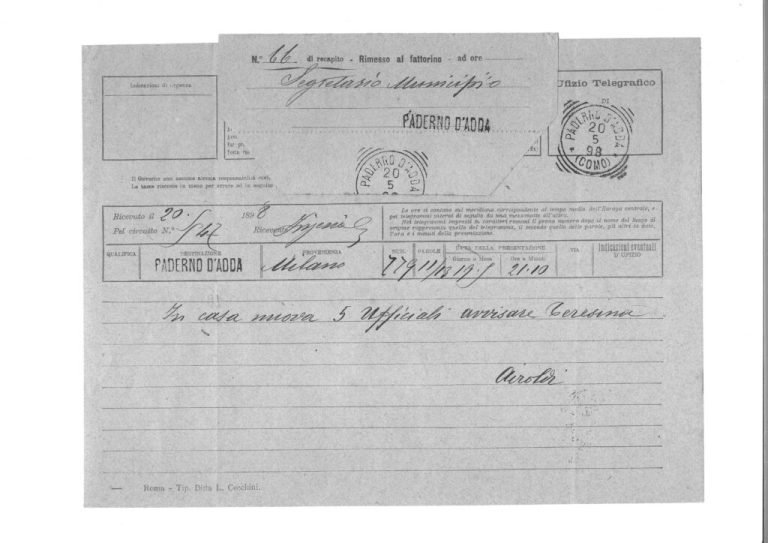 N.° 66 di recapito - Rimesso al fattorino - ad ore
Segretario Municipio
PADERNO D'ADDA
Indicazioni di urgenza
Ufizio Telegrafico
DI
PADERNO D'ADDA
20
5
98
(COMO)
PADERNO D'ADDA
20
5
Il Governo non assume alcuna responsabilità
Le tasse riscosse in meno per errore
Ricevuto il 20 1898
Pel circuito N.° Ricevente
Le ore si contano sul meridiano corrispondente al tempo medio dell'Europa centrale, e
pei telegrammi interni di seguito da una mezzanotte all'altra.
Nei telegrammi impressi in caratteri romani il primo numero dopo il nome del luogo di
origine rappresenta quello del telegramma, il secondo quello delle parole, gli altri la data,
l'ora e i minuti della presentazione.
QUALIFICA DESTINAZIONE PROVENIENZA NUM. PAROLE DATA DELLA PRESENTAZIONE VIA Indicazioni eventuali
Giorno e Mese Ore e Minuti D'UFIZIO
PADERNO D'ADDA Milano 779 11/13 19.5 21.10
In casa nuova 5 Ufficiali avvisare Teresina
Airoldi
Roma - Tip. Ditta L. Cecchini.